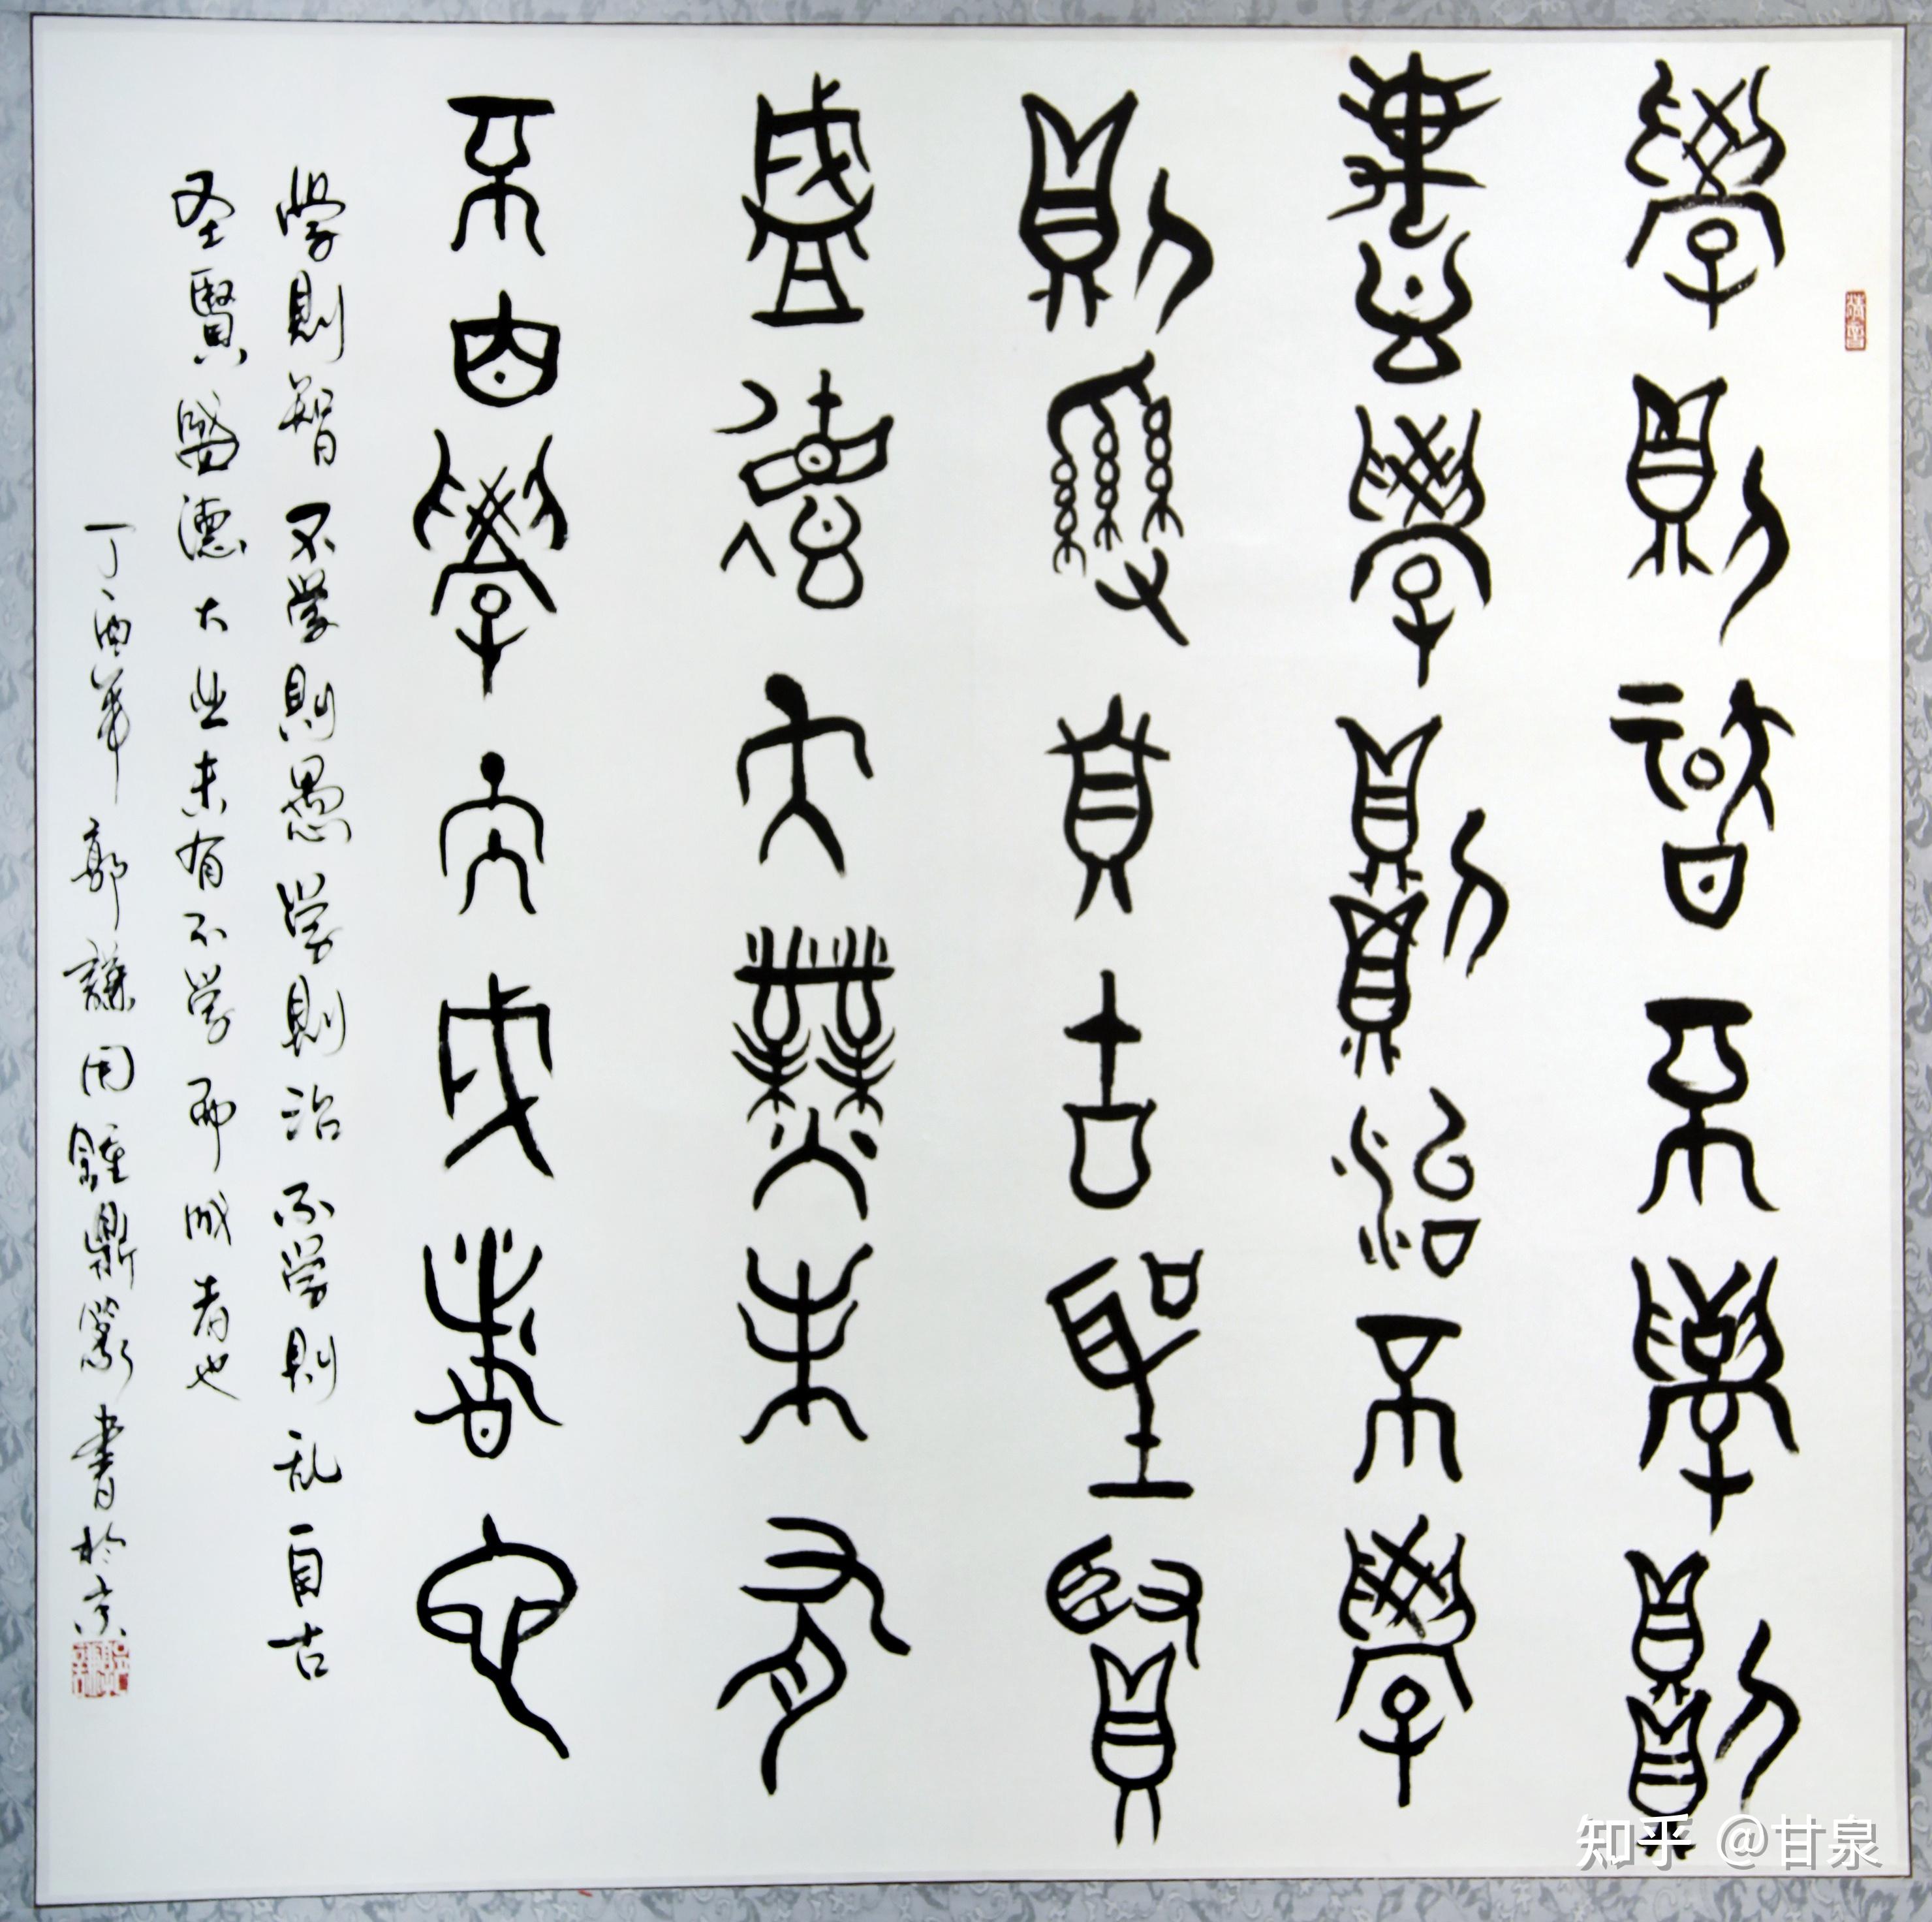 學則智不學則
愚學則治不學
則亂自古聖賢
盛德大業未有
不由學而成者也
学則智不学則愚学則治不学則乱自古
圣賢盛德大业未有不学而成者也
丁酉年郭謙用鐘鼎篆書於京
知乎 @甘泉